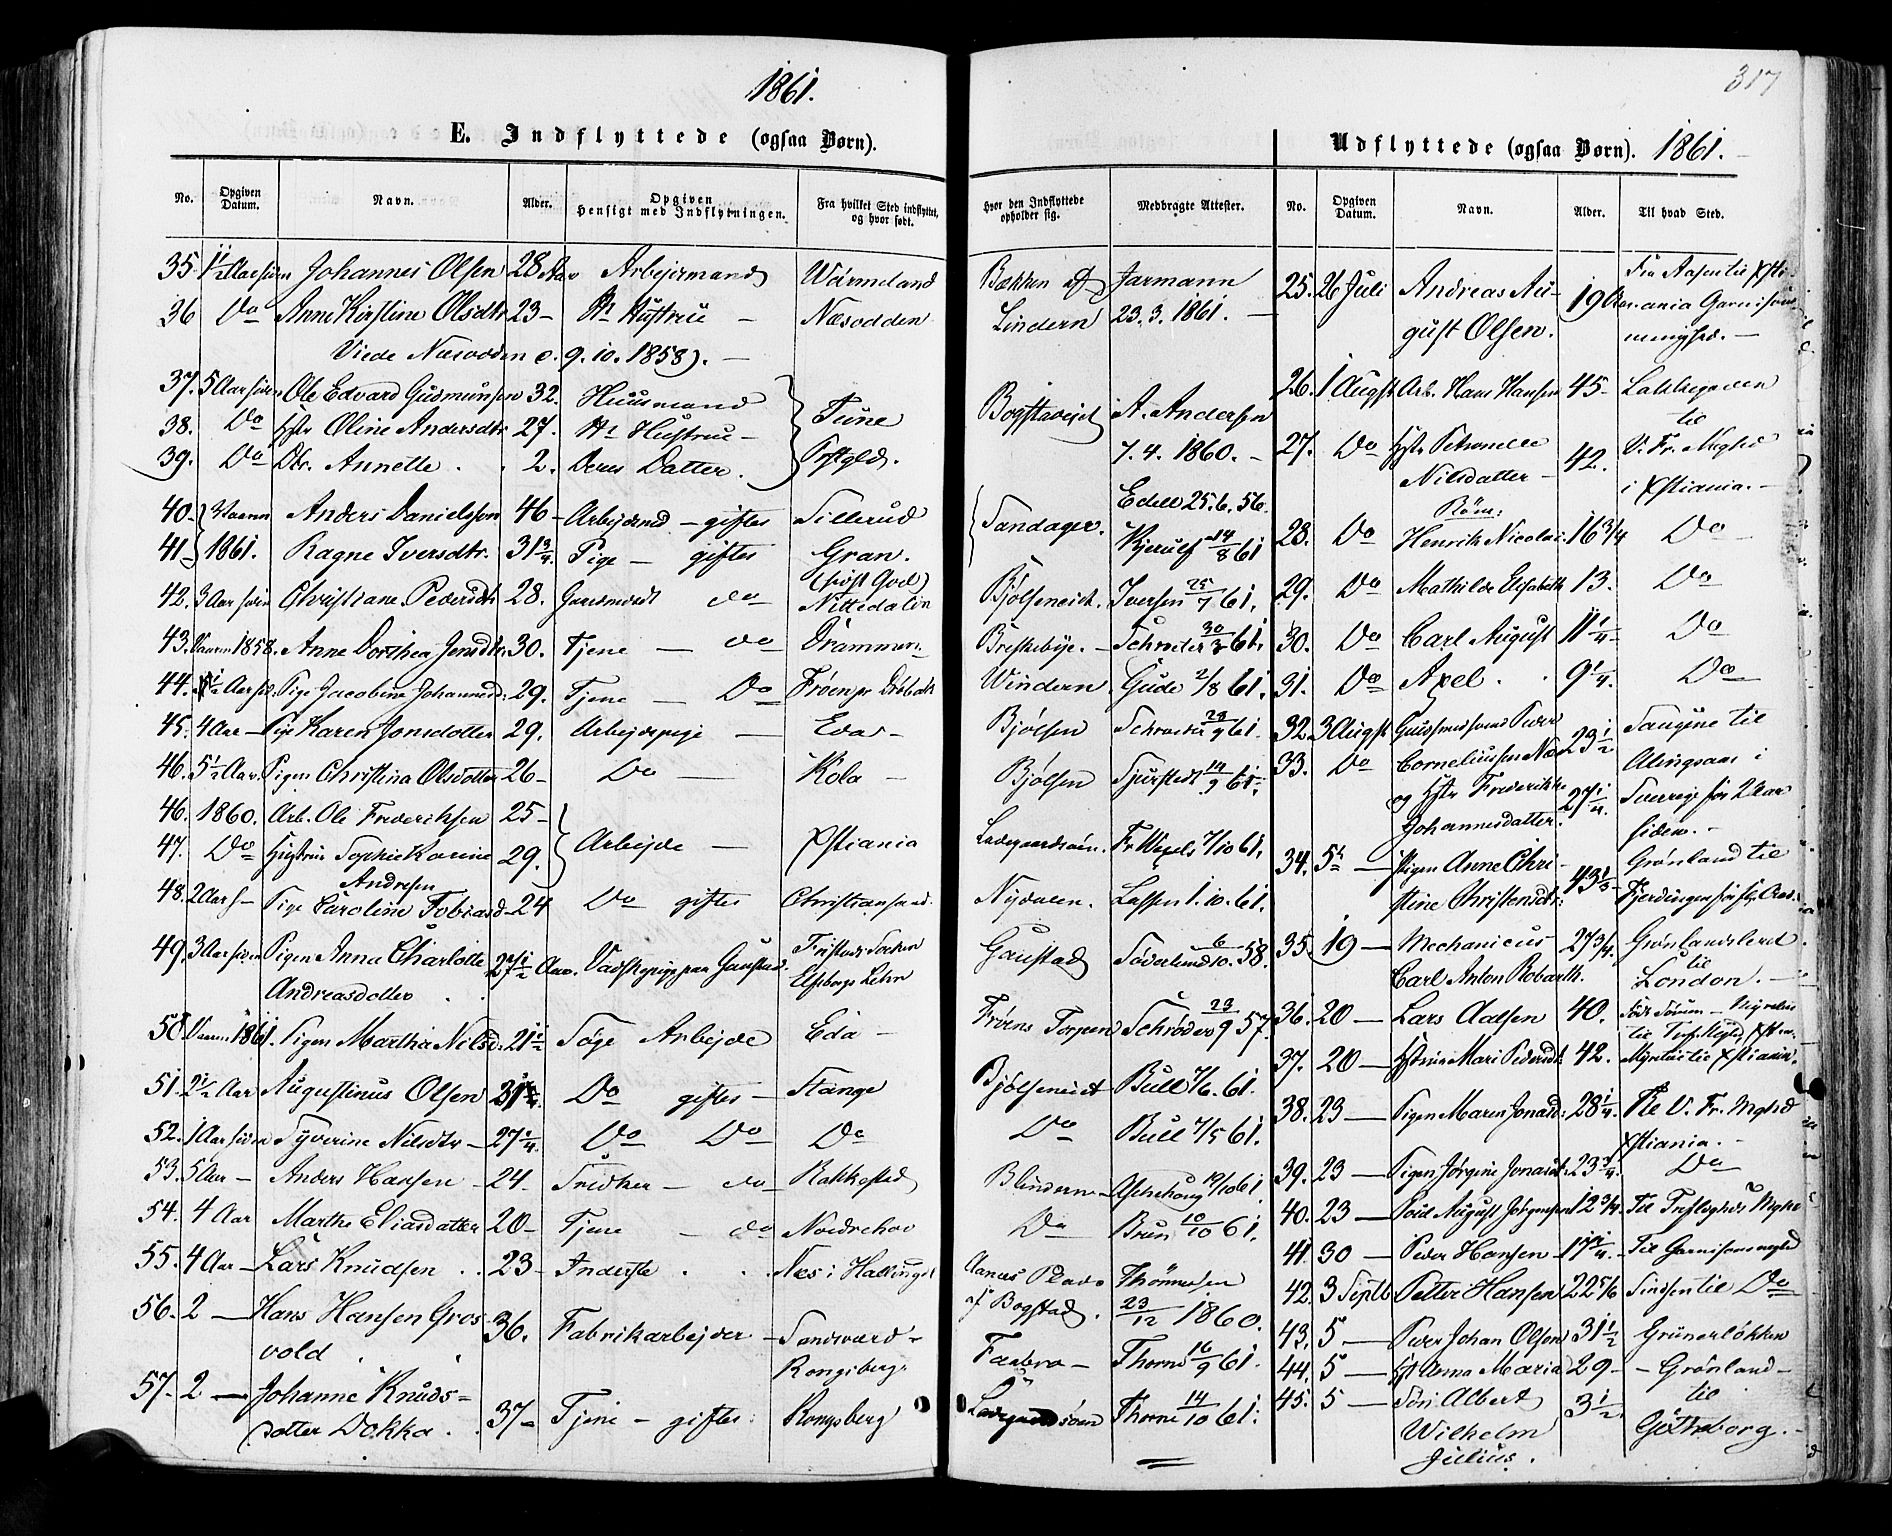 1861.
E. Indflyttede (ogsaa Børn).
No. Opgiven Datum. Navn. Alder. Opgiven Hensigt med Indflytningen. Fra hvilket Sted indflyttet, og hvor født.
Hvor den Indflyttede opholder sig. Medbragte Attester.
35. 1 1/2 Aar siden Johannes Olsen 28 Aar Arbejdsmand Wärmeland Bakken af Jarmann
36 Do Anne Kirstine Olsdtr 23 – Hs Hustrue – Næsodden Lindern 23. 3. 1861. –
Viede Næsodden d. 9. 10. 1858). –
37. 5 Aar siden Ole Edvard Gudmunsen 32. Huusmand Tune Bogstadvejet A. Andersen
38. Do Hstr Oline Andersdtr 27. Hs Hustrue – 7. 4. 1860. –
39. Do Dtr. Annette . . 2. Deres Datter.
40. Vaaren Anders Danielsen 46 – Arbejdsmd – giftes Sillerud Sandager. Edell 25. 6. 56.
41 1861. Ragne Iversdtr. 31 3/4. Pige – giftes Gran. Kjerulf 14/8 61
42. 3 Aar siden Christiane Pedersdtr 28. do Nittedalen Bjølseneiet. Iversen 25/7 61.
43. Vaaren 1858. Anne Dorthea Jensdtr. 30. Tjene – do Drammen. Briskebye. – Schroeter 30/3 61.
44. 1/2 Aar sid. Pige Jacobine Johannesd: 29. Tjene – Do Frøen pr Drøbak Windern. Gude 2/8 61.
45. 4 Aar – Pige Karen Jonsdotter 29. Arbejdspige – Eda – Bjølsen Schroeter 28/9 61.
46. 5 1/2 Aar. Pigen Christina Olsdotter 26 – Do – Kola – Bjølsen 14/9 61.
46. 1860. Arb. Ole Frederiksen 25 –
47. Do Hustrue Sophie Karine Andresen 29. Arbejde – Xstiania Ladegaardsøen. Fr. Wexels 7/10 61.
48. 2 Aar s – Pige Caroline Tobiasd – 24 Do giftes Christiansand. Nydalen. Lassen 1. 10. 61.
49. 3 Aar siden Pigen Anna Charlotte Andreasdotter . . 27 1/2 Aar. Vadskepige paa Gaustad. Elfsborgs Lehn Gaustad Söderlund 6/10. 58.
50. Vaaren 1861. Pigen Martha Nilsd: 21 1/2 Søge Arbejde Eda – Frøens Torpen Schrøder 23/9 57.
51. 2 1/2 Aar Augustinus Olsen Do giftes – Stange Bjølseneiet Bull 61.
52. 1 Aar siden Syverine Nilsdtr – 27 1/4. Do Do Do Do Bull 7/5 61.
53. 5 Aar – Anders Hansen – 24. Snedker – do – Rakkestad Blindern – Aschehoug 19/10 61
54. 4 Aar Marthe Eliasdatter 20 – Tjene – do Norderhov Do Brun 10/10 61.
55. 4 Aar – Lars Knudsen . . 23 – Inderste . . Næs i Hallingd. Aamees Plads Thønnesen
56. 2 – Hans Hansen Grosvold . 36. Fabrikarbejder – Sandsværd – Kongsberg. af Bogstad. 23/12 1860.
Faabro – Thorne 16/9 61.
57. 2 – Johanne Knudsdatter Dokka . . 37 – Tjene – giftes: Kongsberg Ladegaardsøen Thorne 14/10 61.
317
Udflyttede (ogsaa Børn). 1861. –
No. Opgiven Datum. Navn. Alder. Til hvad Sted.
25. 26 Juli Andreas August Olsen. 19 Fra Aasen til Xstiania Garnisonsmenighed. –
26. 1 Augst Arb. Hans Hansen 45 – til
27. Do Hstr Petronelle Nilsdatter – 42. V. Fr. Mghd i Xstiania. –
Børn:
28. Do Henrik Nicolai 16 3/4 Do –
29. Do Mathilde Elisabeth 13. Do
30. Do Carl August 11 1/4 Do
31. Do Axel . . 9 1/4. Do
32 3 Augst Peder Corneliussen 23 1/2 Saugene til
33. Do og Hstr Frederikke Johannesdatter. 27 1/4. Alingsaas i Sverrig for 2 Aar siden. –
34. 5t – Pigen Anne Christine Christensdtr. Grønland til
35. 19 – Mechanicus Carl Anton Robarth. 27 3/4. Grønlandsleret til London. –
36. 20 – Lars Aadsen 40.
37. 20 – Hstrue Mari Pedersdt. 42. til Xstiania.
38. 23 – Pigen Maren Jonasd: 28 1/4. Til V. Fr. Mghd Xstiania. –
39. 23 – Pigen Jørgine Jonasdt. 23 3/4. Do
40. 23 – Poul August Jørgensen 12 3/4. Til Trefoldigheds Mghd
41. 30 – Peder Hansen – 17 1/4. Til Garnisonsmghed
42. 3 Septb Petter Hansen 22 5/6 Sinsen til Do
43. 5 – Peder Johan Olsen 31 1/2 Grünerløkken
44. 5 – Hst Anna Maria 29 – – Grønland –
45. 5 – Søn Albert Wilhelm Julius. 3 1/2 til Götheborg. –